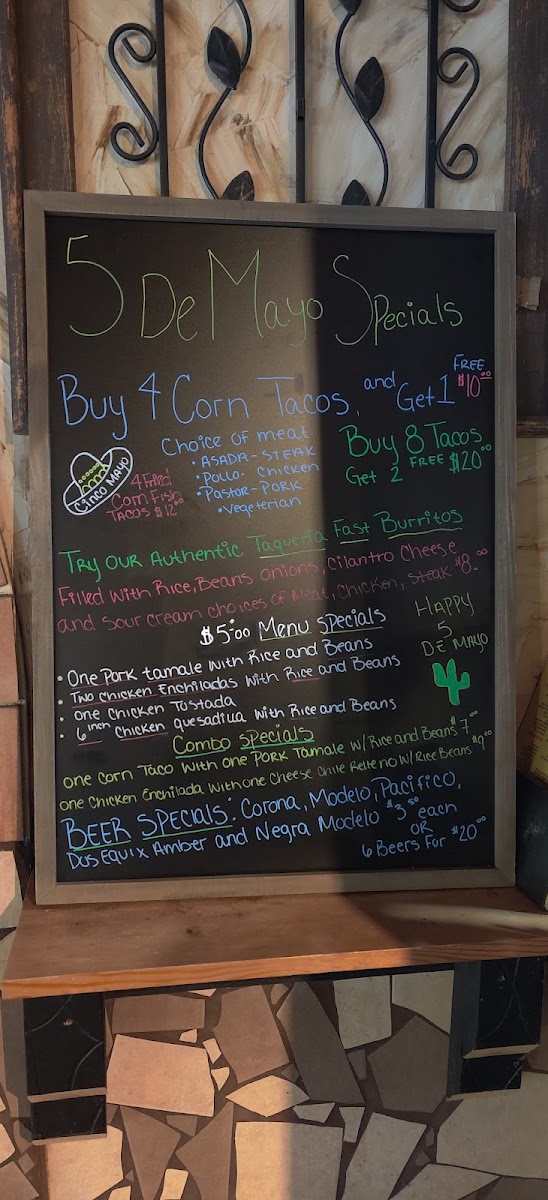 5 De Mayo Specials
Buy 4 Corn Tacos, and Get 1 FREE $10.00
Choice of meat
• ASADA - STEAK
• Pollo - Chicken
• Pastor - PORK
• Vegeterian
Buy 8 Tacos
Get 2 FREE $20.00
Cinco Mayo
4 Fried
Corn Fish
TACOS $12.00
Try our Authentic Taqueria Fast Burritos
Filled with Rice, Beans onions, cilantro Cheese
and sour cream choices of Meat, Chicken, steak $8.00
$5.00 Menu specials
• One Pork tamale with Rice and Beans
• Two chicken Enchiladas with Rice and Beans
• one chicken Tustada
• 6 inch chicken quesadilla with Rice and Beans
HAPPY
5
DE MAYO
Combo specials
one Corn Taco with one PORK Tamale w/ Rice and Beans $7.00
one Chicken Enchilada with one Cheese Chile Relleno w/ Rice Beans $9.00
BEER SPECIALS: Corona, Modelo, Pacifico,
Dus Equix Amber and Negra Modelo $3.50 each
OR
6 Beers For $20.00